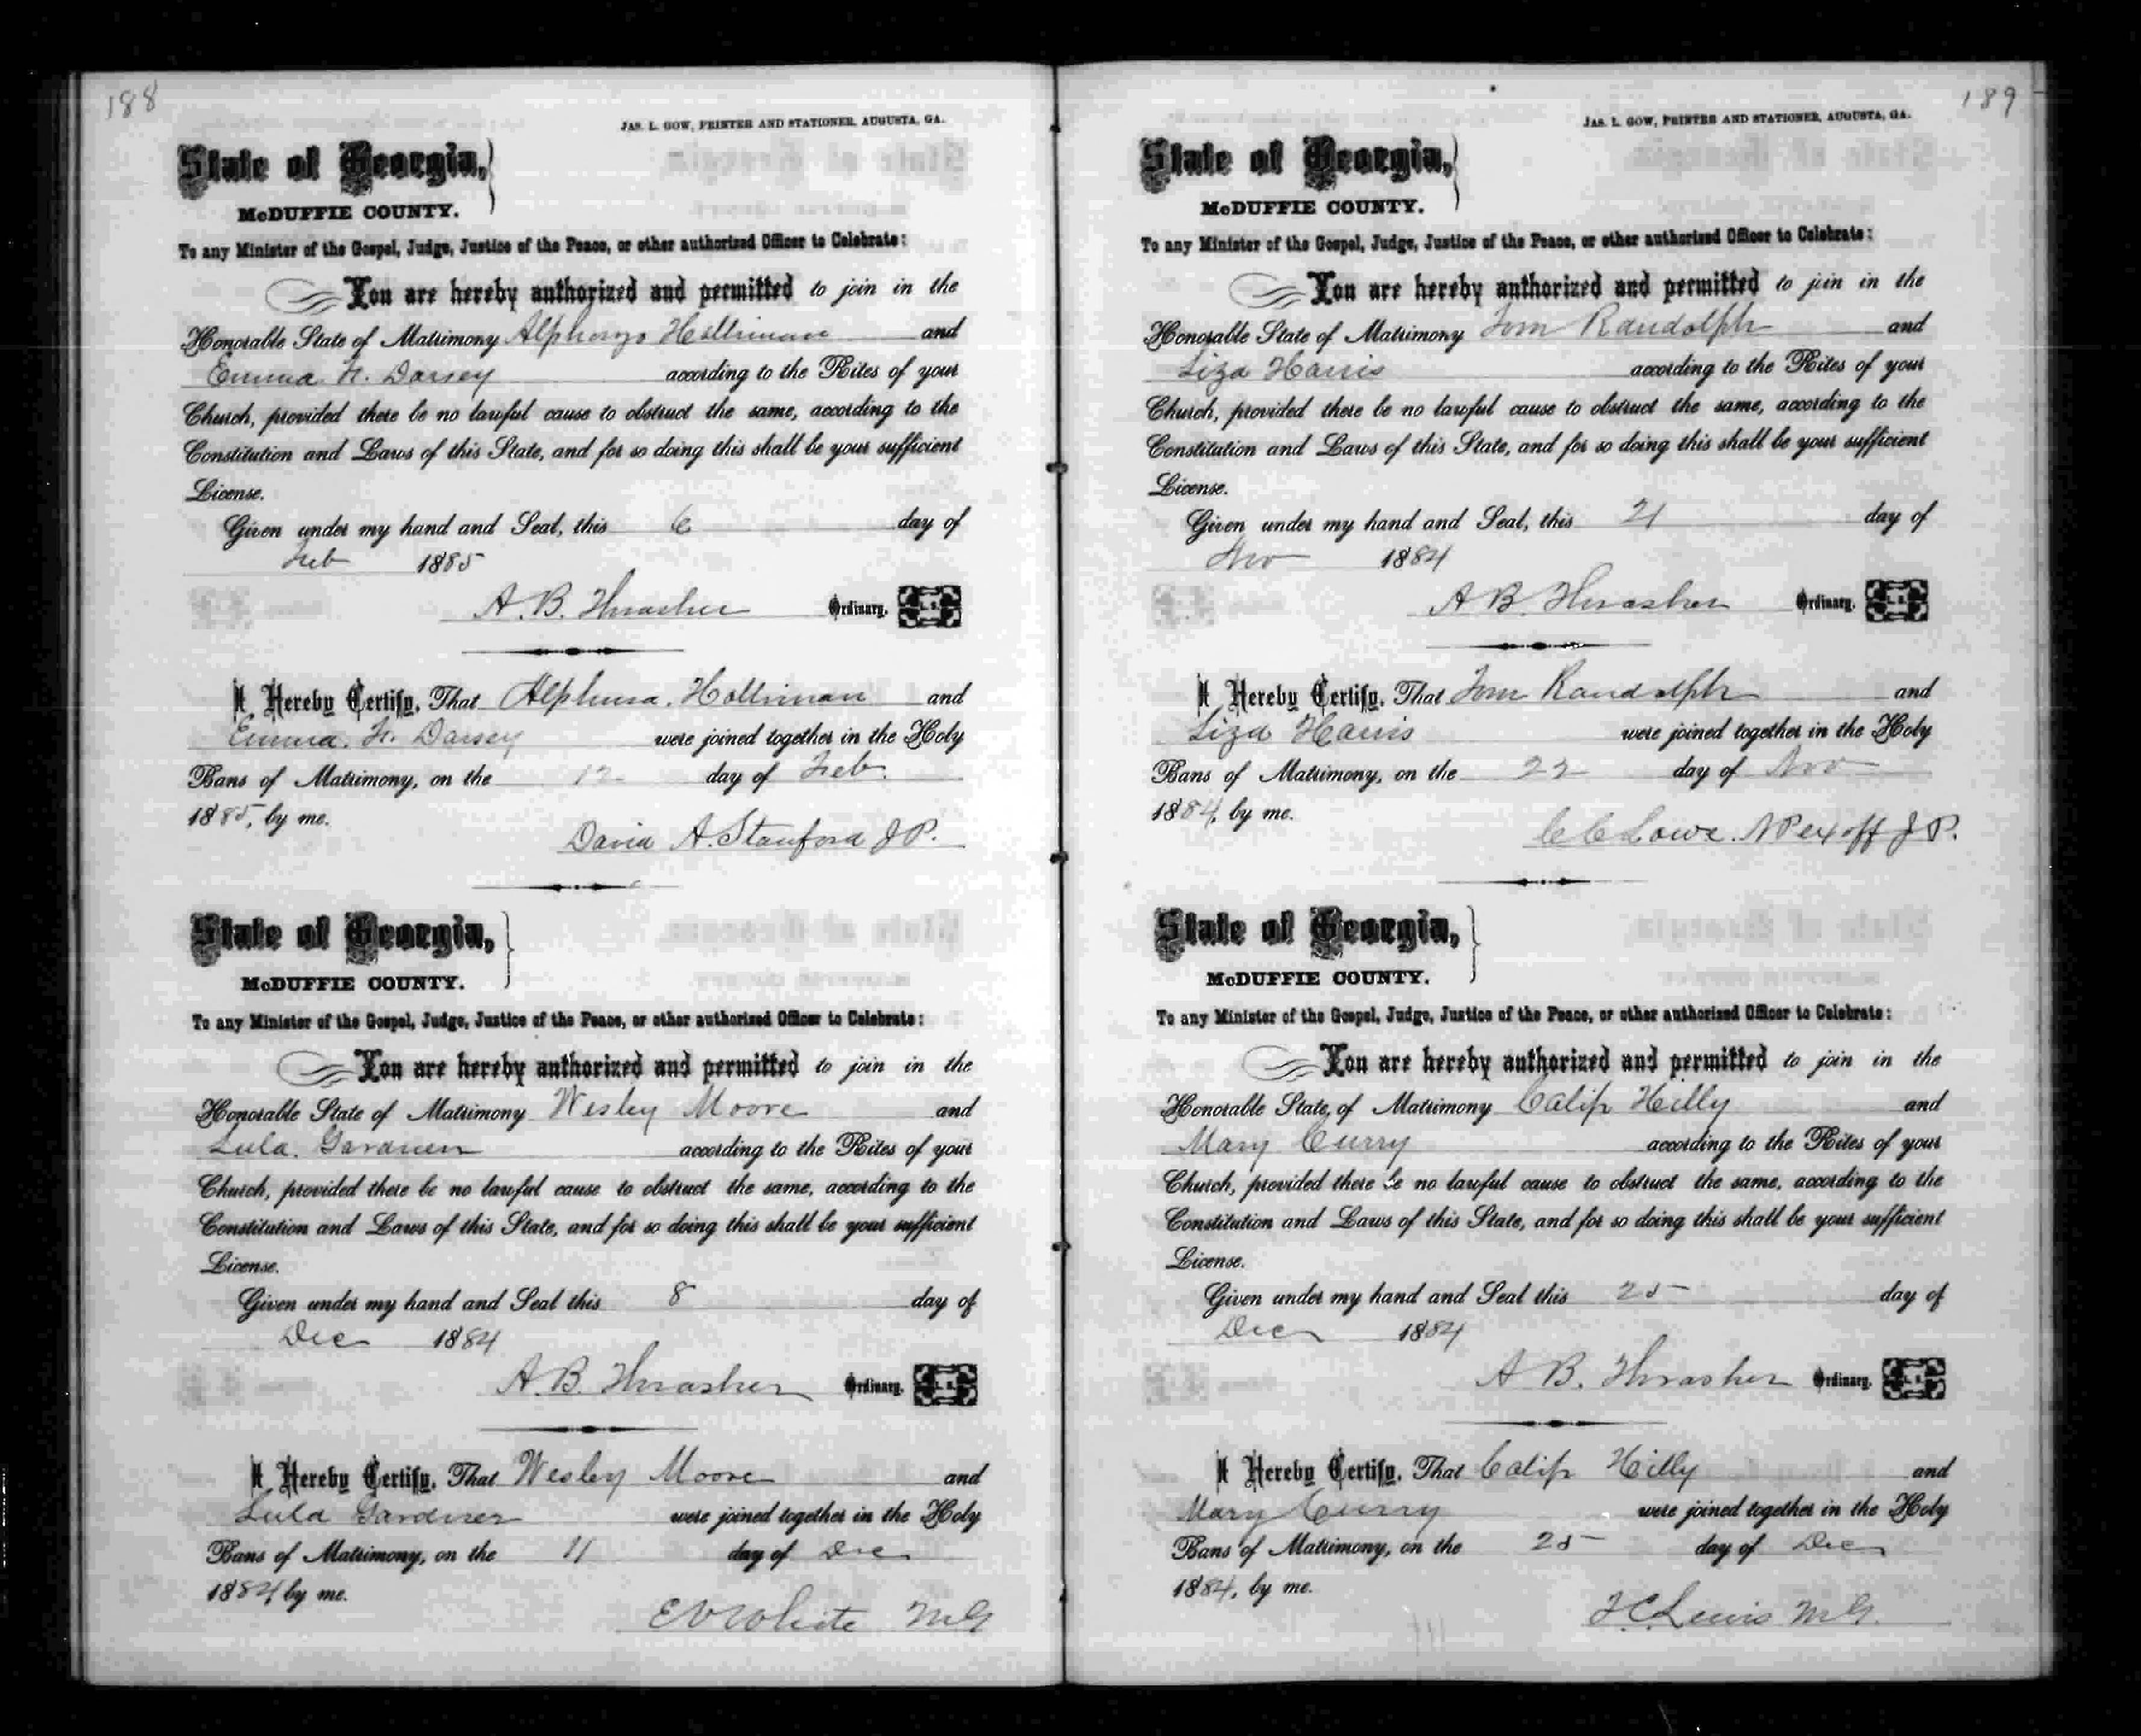 188
JAS. L. GOW, PRINTER AND STATIONER, AUGUSTA, GA.
State of Georgia,
McDUFFIE COUNTY.
To any Minister of the Gospel, Judge, Justice of the Peace, or other authorized Officer to Celebrate:
You are hereby authorized and permitted to join in the
Honorable State of Matrimony Alphonzo Holliman and
Emma F. Darsey according to the Rites of your
Church, provided there be no lawful cause to obstruct the same, according to the
Constitution and Laws of this State, and for so doing this shall be your sufficient
License.
Given under my hand and Seal, this 6 day of
Feb 1885
A. B. Thrasher Ordinary. L. S.
I Hereby Certify, That Holliman and
Emma. F. Darsey were joined together in the Holy
Bans of Matrimony, on the 12 day of Feb.
1885, by me.
David A. Stanford J P.
State of Georgia,
McDUFFIE COUNTY.
To any Minister of the Gospel, Judge, Justice of the Peace, or other authorized Officer to Celebrate:
You are hereby authorized and permitted to join in the
Honorable State of Matrimony Wesley Moore and
Lula. Gardner according to the Rites of your
Church, provided there be no lawful cause to obstruct the same, according to the
Constitution and Laws of this State, and for so doing this shall be your sufficient
License.
Given under my hand and Seal this 8 day of
Dec 1884
A. B. Thrasher Ordinary. L. S.
I Hereby Certify, That Wesley Moore and
Lula Gardner were joined together in the Holy
Bans of Matrimony, on the 11 day of Dec
1884 by me.
E V White M G
189
JAS. L. GOW, PRINTER AND STATIONER, AUGUSTA, GA.
State of Georgia,
McDUFFIE COUNTY.
To any Minister of the Gospel, Judge, Justice of the Peace, or other authorized Officer to Celebrate:
You are hereby authorized and permitted to join in the
Honorable State of Matrimony Tom Randolph and
Liza Harris according to the Rites of your
Church, provided there be no lawful cause to obstruct the same, according to the
Constitution and Laws of this State, and for so doing this shall be your sufficient
License.
Given under my hand and Seal, this 21 day of
Nov 1884
A B. Thrasher Ordinary. L. S.
I Hereby Certify, That Tom Randolph and
Liza Harris were joined together in the Holy
Bans of Matrimony, on the 22 day of Nov
1884, by me.
C C Lowe. N P ex off J P.
State of Georgia,
McDUFFIE COUNTY.
To any Minister of the Gospel, Judge, Justice of the Peace, or other authorized Officer to Celebrate:
You are hereby authorized and permitted to join in the
Honorable State of Matrimony Calip Hilly and
Mary Curry according to the Rites of your
Church, provided there be no lawful cause to obstruct the same, according to the
Constitution and Laws of this State, and for so doing this shall be your sufficient
License.
Given under my hand and Seal this 25 day of
Dec 1884
A B. Thrasher Ordinary. L. S.
I Hereby Certify, That Calip Hilly and
Mary Curry were joined together in the Holy
Bans of Matrimony, on the 25 day of Dec
1884, by me.
Lewis M G.